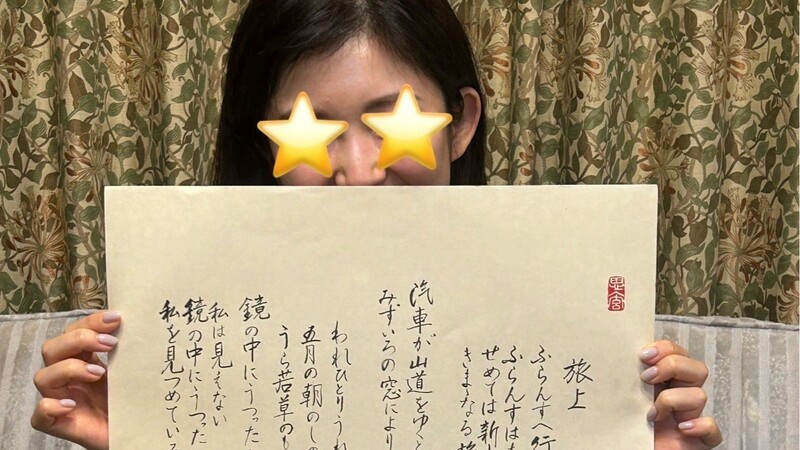 旅上
ふらんすへ行
ふらんすは
せめては新し
きままなる
汽車が山道をゆくと
みずいろの窓により
われひとりうれ
五月の朝のしの
うら若草のも
鏡の中にうつった
私は見えない
鏡の中にうつった
私を見つめている